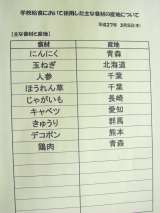 学校給食において使用した主な食材の産地について
平成27年 3月5日(木)
【主な食材と産地】
食材 産地
にんにく 青森
玉ねぎ 北海道
人参 千葉
ほうれん草 千葉
じゃがいも 長崎
キャベツ 愛知
きゅうり 群馬
デコポン 熊本
鶏肉 青森